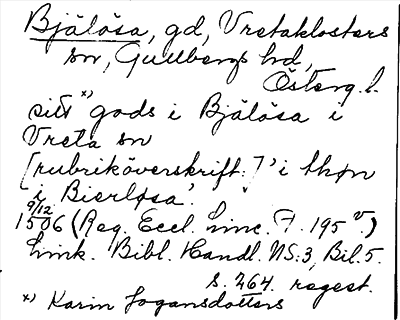 Bjälösa, gd, Vretaklosters
sn, Gullbergs hd,
Österg. l.
sitt x) gods i Bjälösa i
Vreta sn
[rubriköverskrift:] 'i thøn
i Bierløsa'.
9/12
1506 (Reg. Eccl. Linc. F. 195 v.)
Link. Bibl. Handl. NS:3, Bil. 5.
s. 264. regest.
x) Karin Jogansdotters